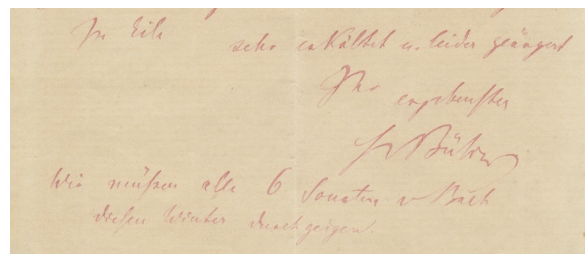 In Eile sehr erkältet u. leider geärgert
Ihr
ergebenster
HvBülow
Wir müssen alle 6 Sonaten v Bach
diesen Winter durchgeigen.